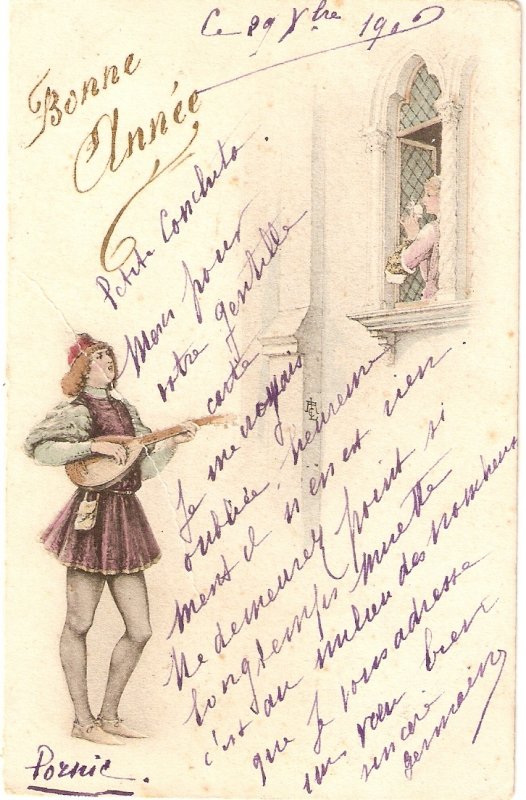 Ce 29 Xbre 1906
Bonne
Année
Petite Conchita.
Merci pour
votre gentille
carte
Je me voyais
oubliée, heureuse
ment il n'en est rien.
Ne demeurez point si
longtemps muette
c'est au milieu des nombreux
que je vous adresse
un vœu bien
sincère
Germaine
Pornic.